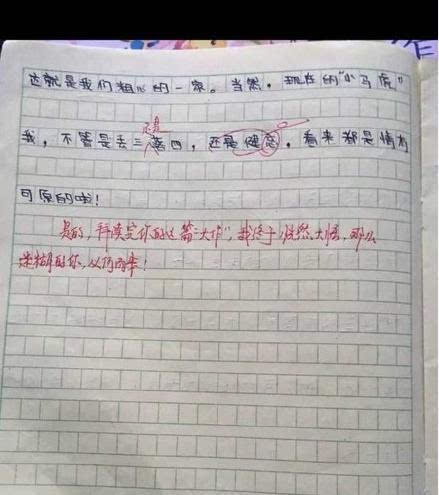 这就是我们粗心的一家。当然，现在的“小马虎”
还是
我，不管是丢三落四，还是健忘，看来都是情有
可原的啦！
是的，拜读完你的这篇“大作”，我终于恍然大悟，那么
迷糊的你，从何而来！